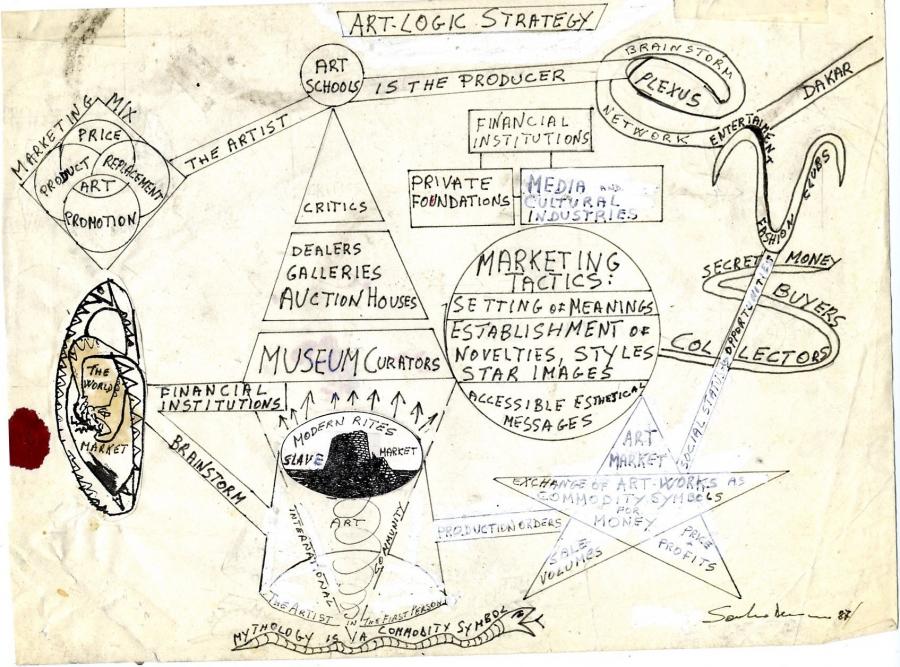 ART-LOGIC STRATEGY
ART
SCHOOLS
IS THE PRODUCER
BRAINSTORM
PLEXUS
NETWORK
DAKAR
ENTERTAIMENT
MARKETING MIX
PRICE
PRODUCT
REPLACEMENT
ART
PROMOTION
THE ARTIST
FINANCIAL
INSTITUTIONS
PRIVATE
FOUNDATIONS
MEDIA AND
CULTURAL
INDUSTRIES
CLUBS
FASHION
CRITICS
DEALERS
GALLERIES
AUCTION HOUSES
MUSEUM CURATORS
MARKETING
TACTICS:
SETTING OF MEANINGS
ESTABLISHMENT OF
NOVELTIES, STYLES
STAR IMAGES
ACCESSIBLE ESTHETICAL
MESSAGES
SECRET MONEY
BUYERS
COLLECTORS
SOCIAL STATUS OPPORTUNITIES
THE WORLD
MARKET
FINANCIAL
INSTITUTIONS
BRAINSTORM
MODERN RITES
SLAVE MARKET
ART
INTERNATIONAL
COMMUNITY
THE ARTIST IN THE FIRST PERSON
MYTHOLOGY IS A COMMODITY SYMBOL
PRODUCTION ORDERS
ART
MARKET
EXCHANGE OF ART-WORKS AS
COMMODITY SYMBOLS
FOR
MONEY
SALE
VOLUMES
PRICE
PROFITS
87